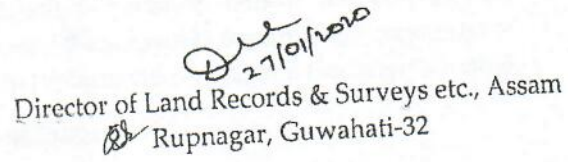 27/01/2020
Director of Land Records & Surveys etc., Assam
Rupnagar, Guwahati-32